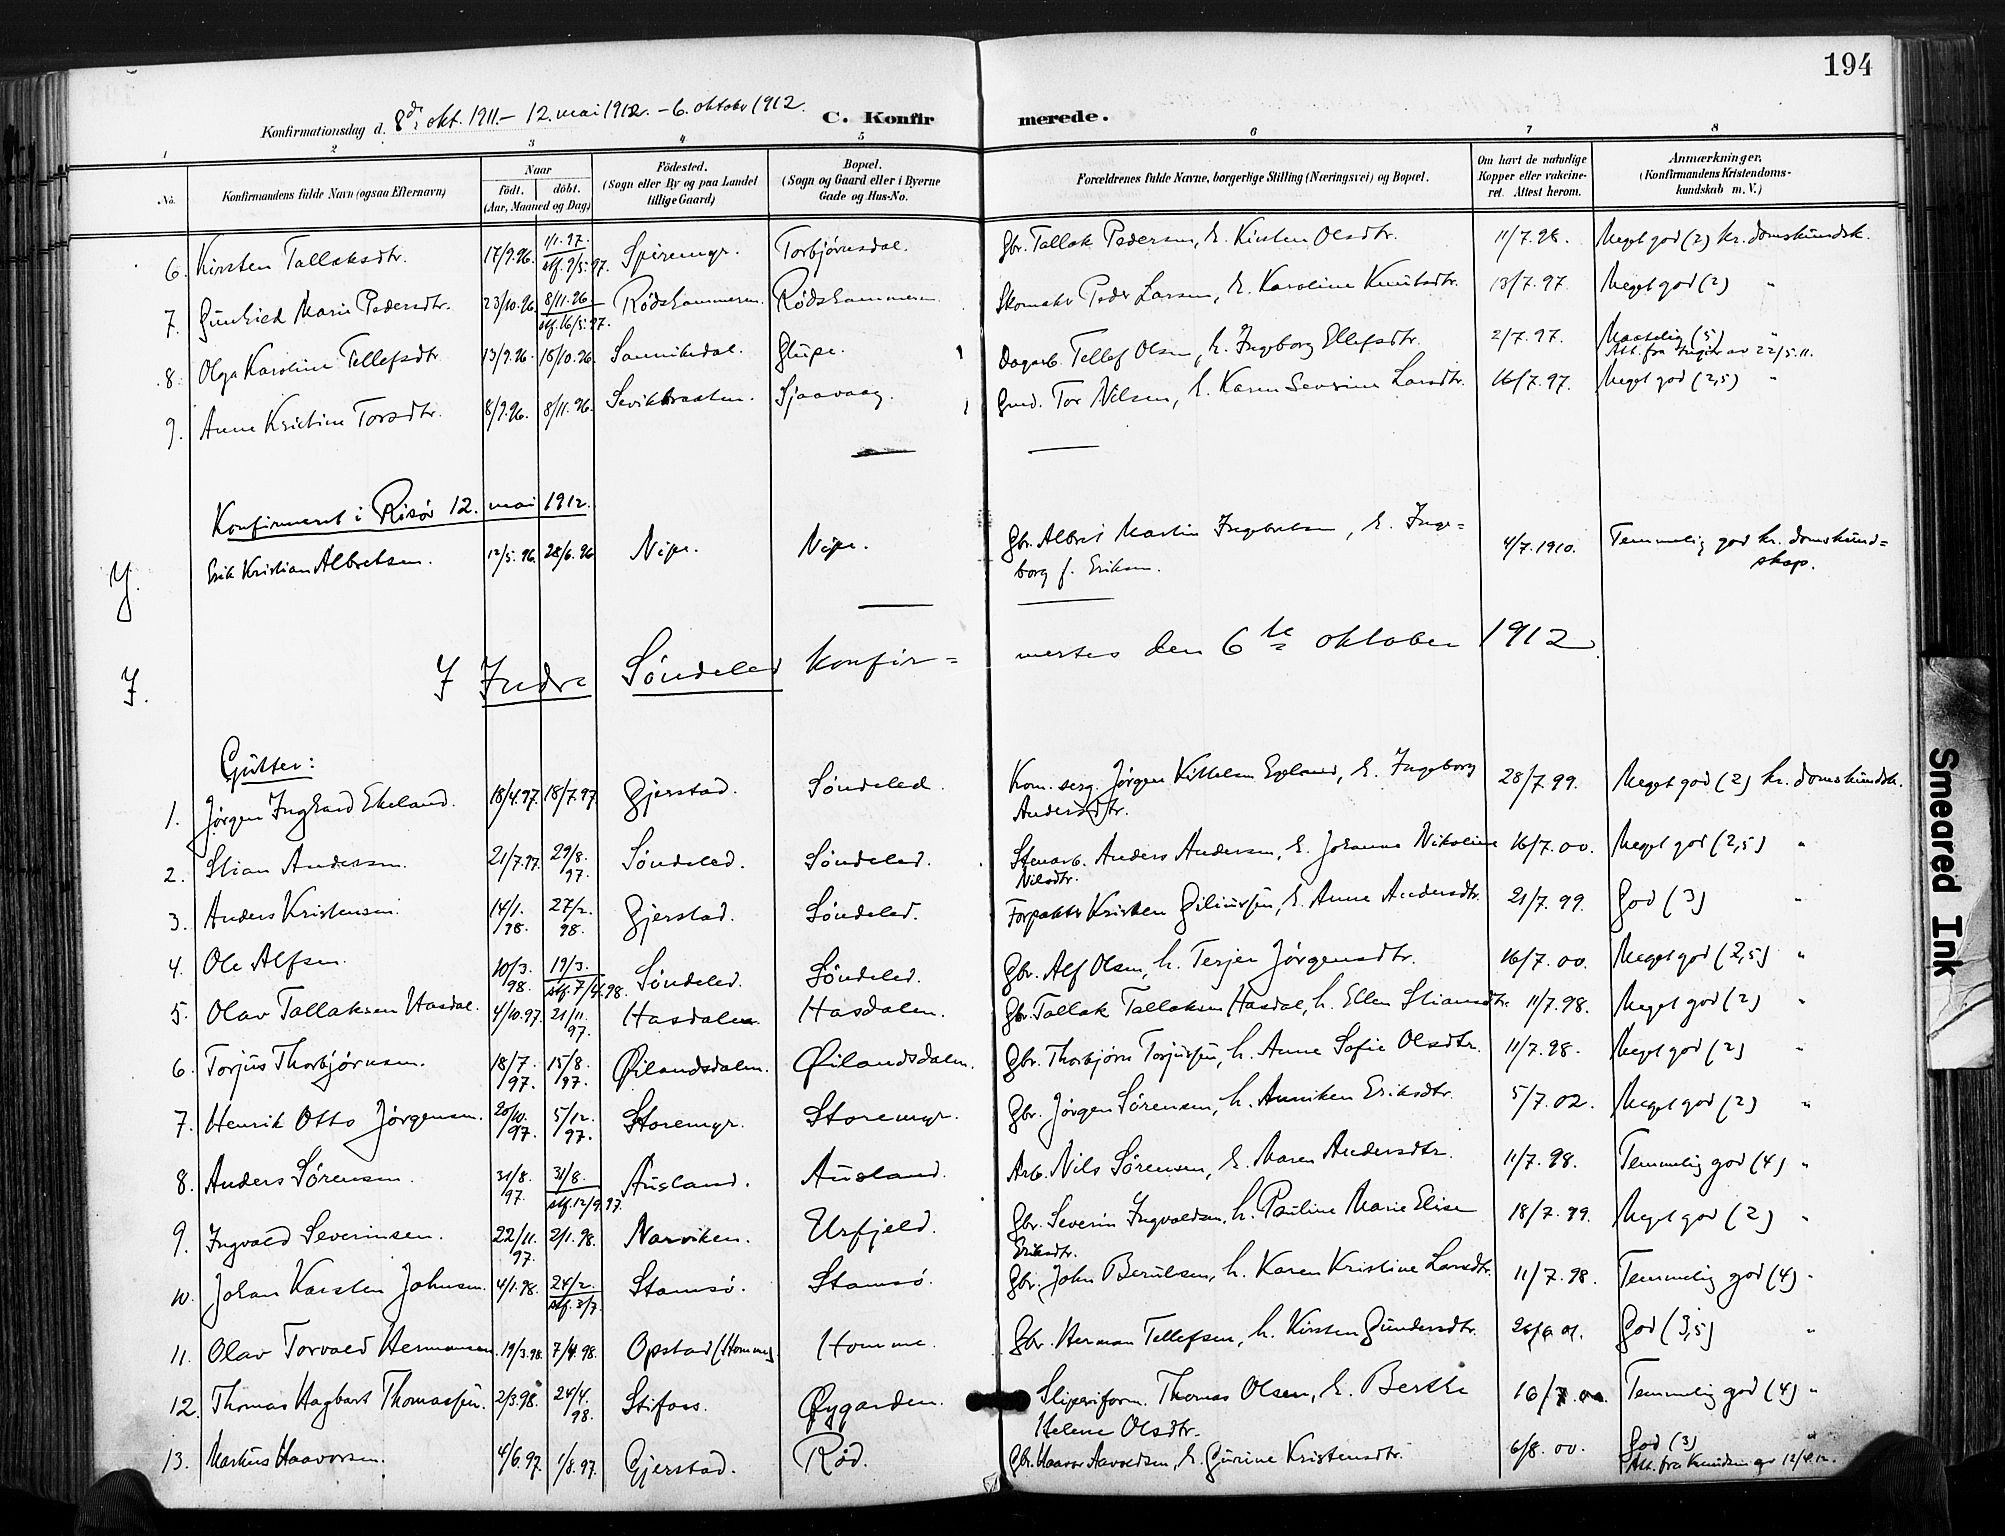 194
Konfirmationsdag d. 8de okt. 1911. – 12. mai 1912. – 6. oktober 1912. C. Konfir merede.
1 2 3 4 5 6 7 8
No. Konfirmandens fulde Navn (ogsaa Efternavn) Naar født. døbt. (Aar, Maaned og Dag) Fødested. (Sogn eller By og paa Landet tillige Gaard) Bopæl. (Sogn og Gaard eller i Byerne Gade og Hus-No. Forældrenes fulde Navne, borgerlige Stilling (Næringsvei) og Bopæl. Om havt de naturlige Kopper eller vakcineret. Attest herom. Anmærkninger. (Konfirmandens Kristendomskundskab m. V.)
6. Kirsten Tallaksdtr. 17/9.96. 1/1.97. stf. 9/5.97. Spiremyr. Torbjørnsdal. Gbr. Tallak Pedersen, h. Kirsten Olsdtr. 11/7.98. Meget god (2) kr.domskundsk.
7. Gunhild Marie Pedersdtr. 23/10.96. 8/11.96 stf. 16/5.97. Rødskammeren. Rødskammeren. Skomaker Peder Larsen, h. Karoline Knutsdtr. 13/7.97. Meget god (2) "
8. Olga Karoline Tellefsdtr. 13/9.96. 18/10.96. Sannikedal. Glupe. Dagarb. Tellef Olsen, h. Ingeborg Ellefsdtr. 2/7.97. Maatelig (5) " Att. fra av 22/5.11.
9. Anne Kristine Torsdtr. 8/9.96. 8/11.96. Sevikbraaten. Sjaavaag. Gmd. Tor Nilsen, h. Karen Severine Larsdtr. 16/7.97. Meget god (2,5) "
Konfirmeret i Risør 12. mai 1912.
Y. Erik Kristian Albretsen. 12/5.96. 28/6.96 Nipe. Nipe. Gbr. Albret Martin Ingebretsen, h. Inge=
borg f. Eriksen. 4/7.1910. Temmelig god kr.domskund=
skap.
I. I Indre Søndeled konfir= mertes den 6te oktober 1912.
Gutter:
1. Jørgen Inghard Ekeland. 18/4.97. 18/7.97. Gjerstad. Søndeled. Kom. serg. Jørgen Vilhelm Egeland, h. Ingeborg
Andersdtr. 28/7.99. Meget god (2) kr.domskundsk.
2. Stian Andersen. 21/7.97. 29/8.97. Søndeled. Søndeled. Stenarb. Anders Andersen, h. Johanne Nikoline
Nilsdtr. 16/7.00. Meget god (2,5) "
3. Anders Kristensen. 14/1.98. 27/2.98. Gjerstad. Søndeled. Forpakter Kristen Giliussen, h. Anne Andersdtr. 21/7.99. God (3) "
4. Ole Alfsen. 10/3.98. 19/3. stf. 7/4.98. Søndeled. Søndeled. Gbr. Alf Olsen, h. Terjer Jørgensdtr. 16/7.00. Meget god (2,5) "
5. Olav Tallaksen Hasdal. 4/10.97. 21/11.97. Hasdalen. Hasdalen. Gbr. Tallak Tallaksen Hasdal, h. Ellen Stiansdtr. 11/7.98. Meget god (2) "
6. Torjus Thorbjørnsen. 18/7.97. 15/8.97. Øilandsdalen. Øilandsdalen. Gbr. Thorbjørn Torjussen, h. Anne Sofie Olsdtr. 11/7.98. Meget god (2) "
7. Henrik Otto Jørgensen. 20/10.97. 5/12.97. Storemyr. Storemyr. Gbr. Jørgen Sørensen, h. Anniken Eriksdtr. 5/7.02. Meget god (2) "
8. Anders Sørensen. 31/8.97. 31/8. stf. 12/9.97. Ausland. Ausland. Arb. Nils Sørensen, h. Maren Andersdtr. 11/7.98. Temmelig god (4) "
9. Ingvald Severinsen. 22/11.97. 2/1.98. Narviken. Urfjeld. Gbr. Severin Ingvaldsen, h. Pauline Marie Elise
Eriksdtr. 18/7.99. Meget god (2) "
10. Johan Karsten Johnsen. 4/1.98. 24/2. stf. 3/7. Stamsø. Stamsø. Gbr. John Berulsen, h. Karen Kristine Larsdtr. 11/7.98. Temmelig god (4) "
11. Olav Torvald Hermansen. 19/3.98. 7/4.98. Opstad (Homme) Homme. Gbr. Herman Tellefsen, h. Kirsten Gundersdtr. 26/6.01. God (3,5) "
12. Thomas Hagbart Thomassen. 2/3.98. 24/4.98. Stifoss. Øygarden. Sliperiform. Thomas Olsen, h. Berthe
Helene Olsdtr. 16/7.00. Temmelig god (4) "
13. Markus Haavorsen. 4/6.97. 1/8.97. Gjerstad. Rød. Gbr. Haavor Aavoldsen, h. Gurine Kristensdtr. 6/8.00. God (3) " Att. fra Knudsen av 12/4.12.
Smeared Ink